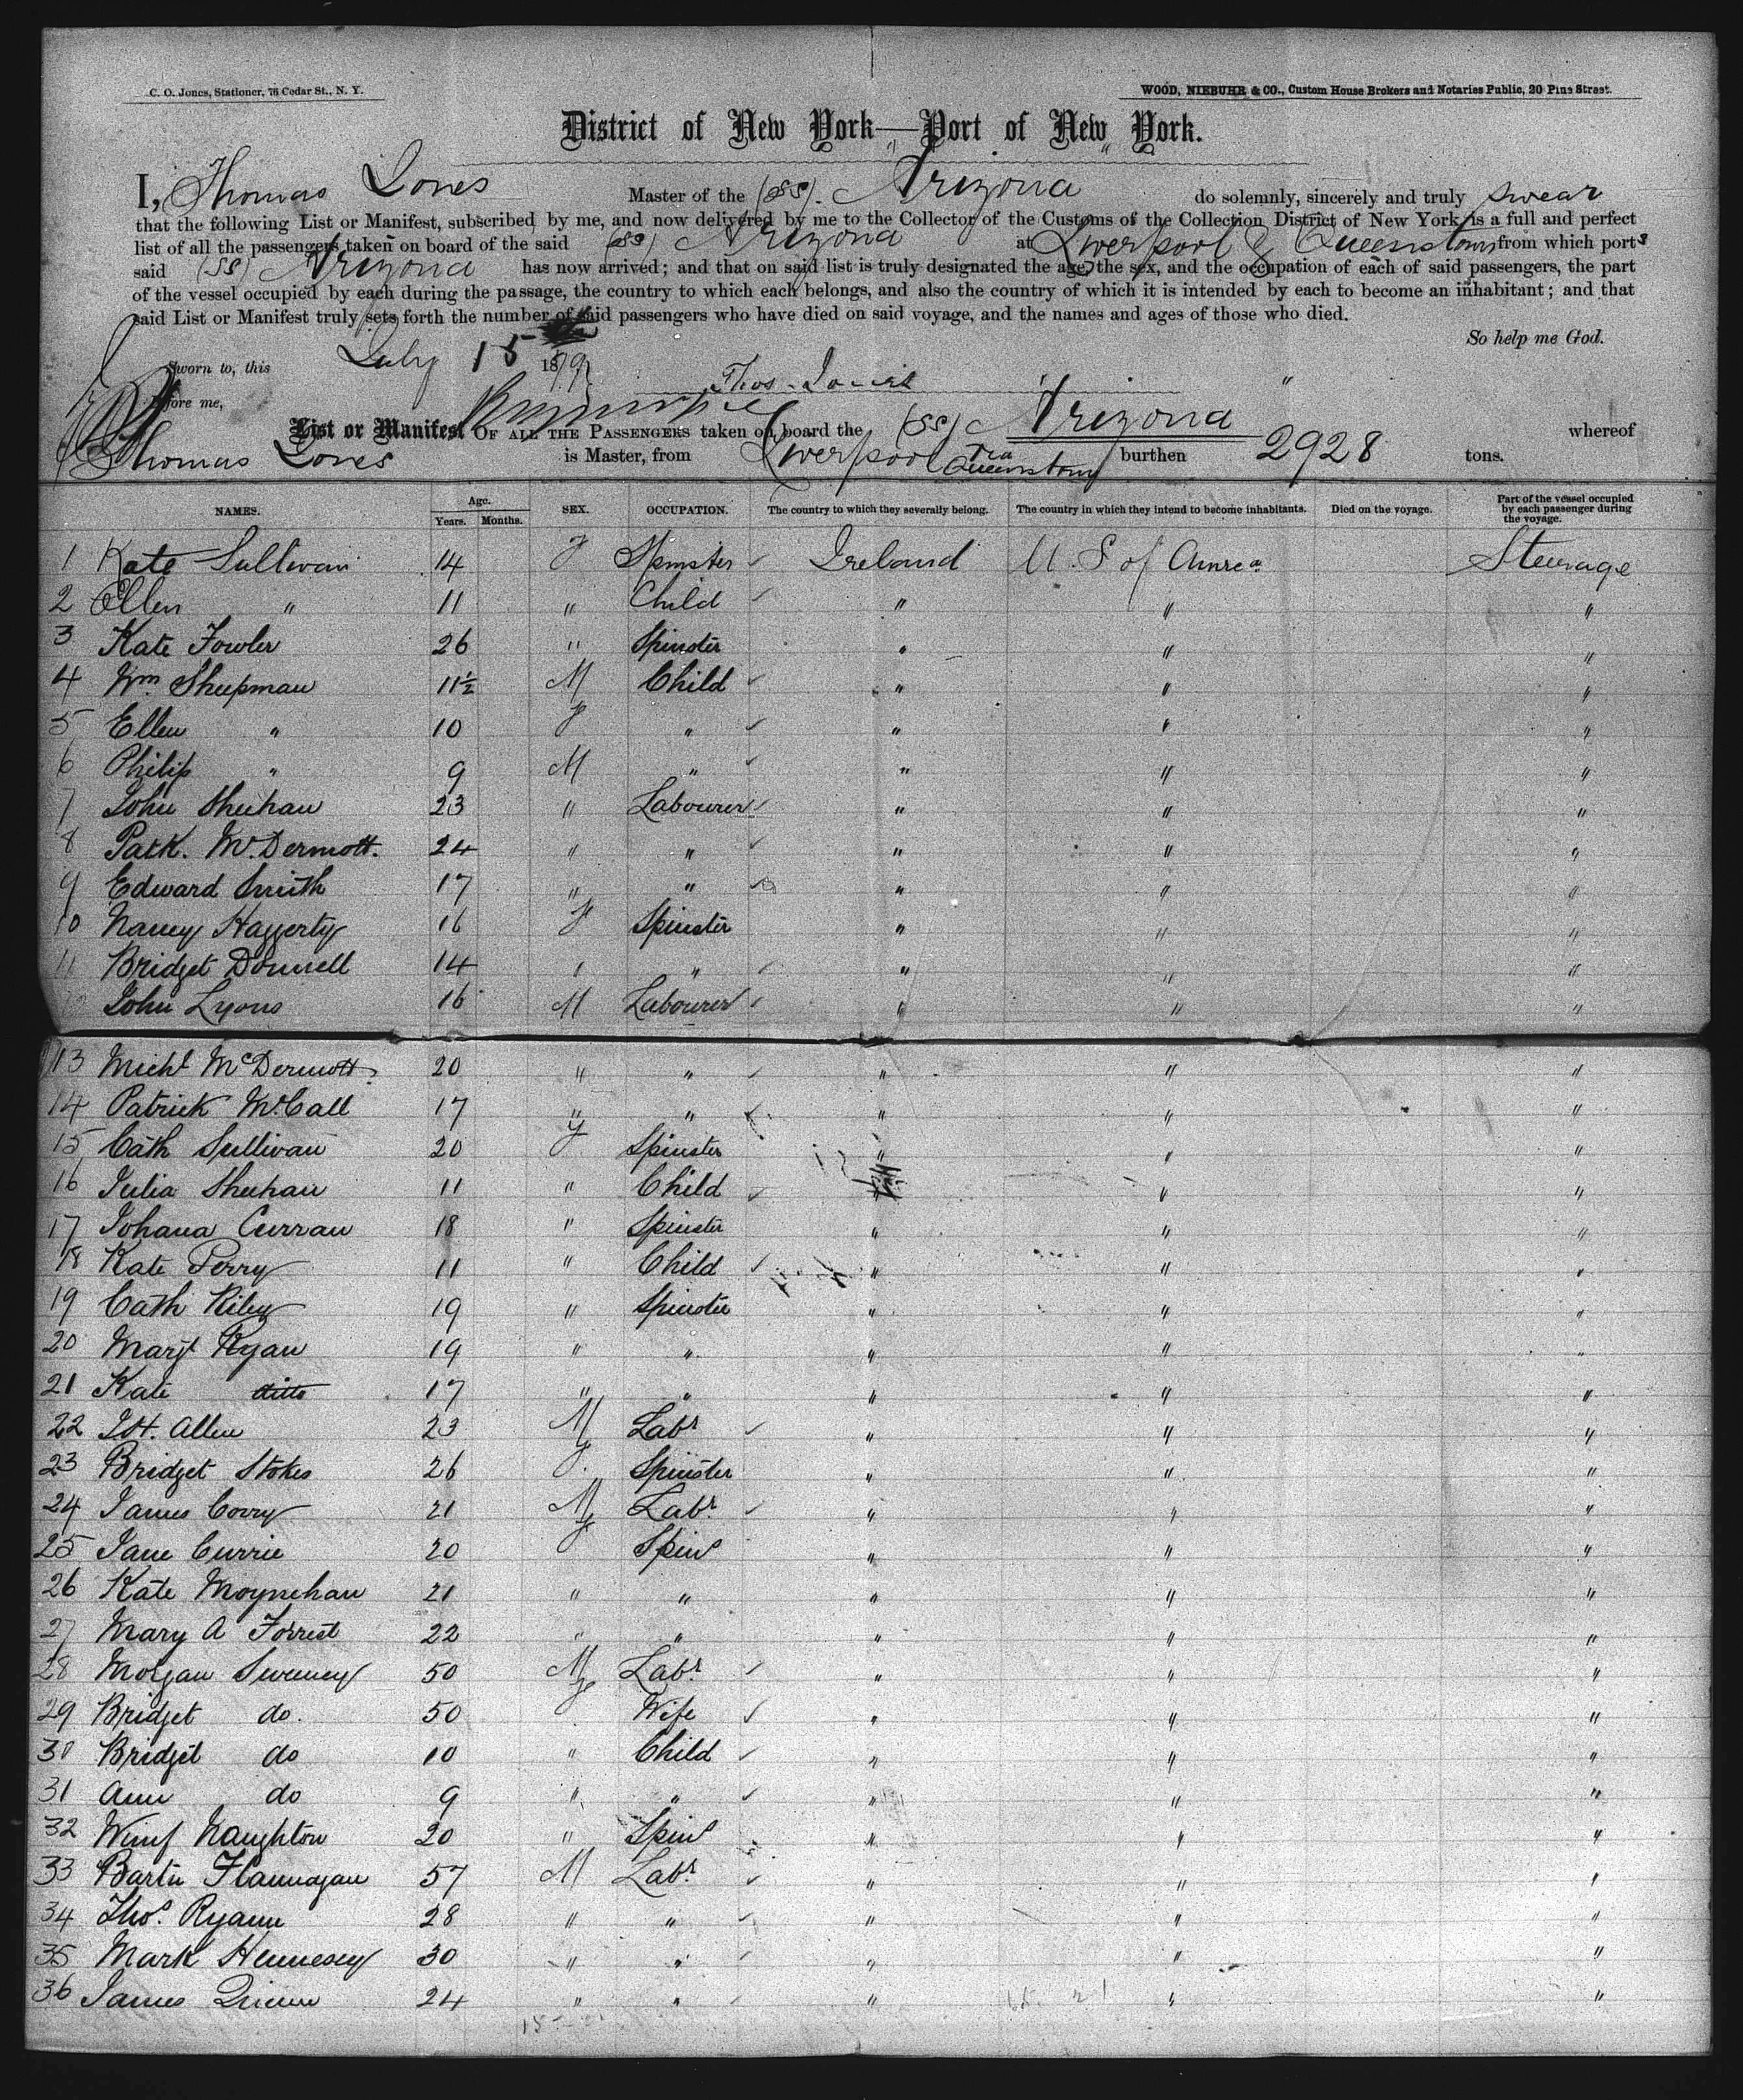 C. O. Jones, Stationer, 76 Cedar St., N. Y.
WOOD, NIEBUHR & CO., Custom House Brokers and Notaries Public, 20 Pine Street.
District of New York—Port of New York.
I, Thomas Jones Master of the (SS). Arizona do solemnly, sincerely and truly swear
that the following List or Manifest, subscribed by me, and now delivered by me to the Collector of the Customs of the Collection District of New York, is a full and perfect
list of all the passengers taken on board of the said (SS) Arizona at Liverpool & Queenstown from which ports
said (SS) Arizona has now arrived; and that on said list is truly designated the age, the sex, and the occupation of each of said passengers, the part
of the vessel occupied by each during the passage, the country to which each belongs, and also the country of which it is intended by each to become an inhabitant; and that
said List or Manifest truly sets forth the number of said passengers who have died on said voyage, and the names and ages of those who died.
So help me God.
Sworn to, this July 15 1879
Thos. Jones
Before me,
List or Manifest OF ALL THE PASSENGERS taken on board the (SS) Arizona whereof
Thomas Jones is Master, from Liverpool via Queenstown burthen 2928 tons.
NAMES. Age. Years. Months. SEX. OCCUPATION. The country to which they severally belong. The country in which they intend to become inhabitants. Died on the voyage. Part of the vessel occupied by each passenger during the voyage.
1 Kate Sullivan 14 F Spinster Ireland U. S of Amrca Steerage
2 Ellen " 11 " Child " " "
3 Kate Fowler 26 " Spinster " " "
4 Wm Sheepman 11½ M Child " " "
5 Ellen " 10 F " " " "
6 Philip " 9 M " " " "
7 John Sheehan 23 " Labourer " " "
8 Patk. McDermott. 24 " " " " "
9 Edward Smith 17 " " " " "
10 Nancy Haggerty 16 F Spinster " " "
11 Bridget Donnell 14 " " " " "
12 John Lyons 16 M Labourer " " "
13 Michl McDermott 20 " " " " "
14 Patrick McCall 17 " " " " "
15 Cath Sullivan 20 F Spinster " " "
16 Julia Sheehan 11 " Child " " "
17 Johana Curran 18 " Spinster " " "
18 Kate Perry 11 " Child " " "
19 Cath Riley 19 " Spinster " " "
20 Margt Ryan 19 " " " " "
21 Kate ditto 17 " " " " "
22 Allen 23 M Labr " " "
23 Bridget Stokes 26 F Spinster " " "
24 James Corry 21 M Labr " " "
25 Jane Currie 20 F Spinr " " "
26 Kate Moynehan 21 " " " " "
27 Mary A Forrest 22 " " " " "
28 Morgan Sweeney 50 M Labr " " "
29 Bridget do. 50 F Wife " " "
30 Bridget do 10 " Child " " "
31 Ann do 9 " " " " "
32 Winif Naughton 20 " Spinr " " "
33 Bartw Flannagan 57 M Labr " " "
34 Thos. Ryann 28 " " " " "
35 Mark Hennesey 30 " " " " "
36 James Quinn 24 " " " " "